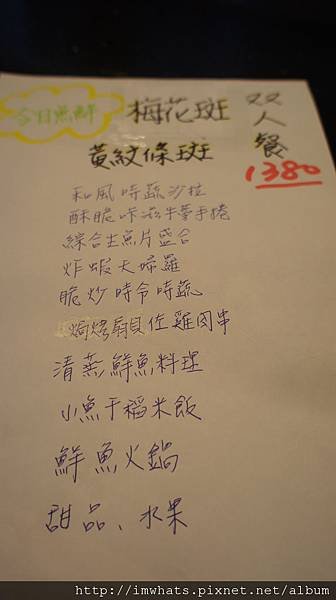 今日魚鮮 梅花斑 双人餐
黃紋條斑 1380
和風時蔬沙拉
酥脆咔滋牛蒡手捲
綜合生魚片盛合
炸蝦天婦羅
脆炒時令時蔬
焗烤扇貝佐雞肉串
清蒸鮮魚料理
小魚干稻米飯
鮮魚火鍋
甜品、水果
http://imwhats.pixnet.net/album